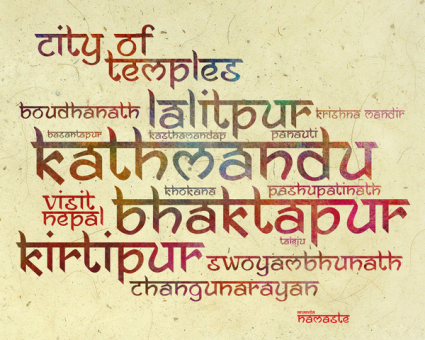 city of
temples
boudhanath lalitpur krishna mandir
basantapur kasthamandap panauti
kathmandu
khokana pashupatinath
visit
nepal
bhaktapur
taleju
kirtipur swoyambhunath
changunarayan
namaste